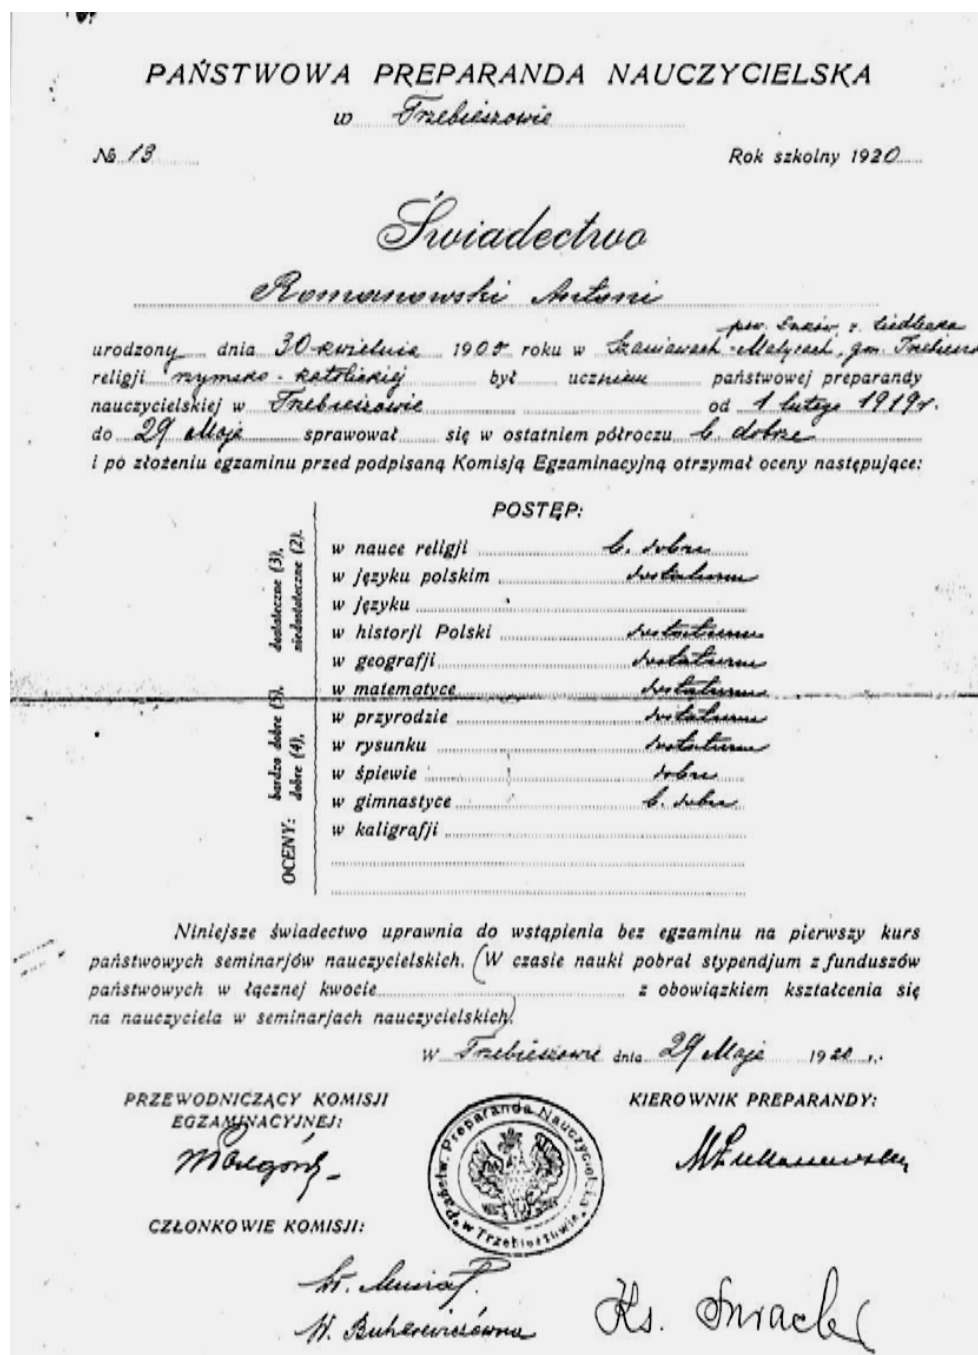 PAŃSTWOWA PREPARANDA NAUCZYCIELSKA
w Trzebieszowie
№ 13 Rok szkolny 1920
Świadectwo
Romanowski Antoni
pow. Łuków, z. Siedlecka
urodzony dnia 30 kwietnia 190 roku w Szaniawach-Matysach, gm. Trzebiesz
religji rzymsko-katolickiej był uczniem państwowej preparandy
nauczycielskiej w Trzebieszowie od 1 lutego 1919r.
do 29 Maja sprawował się w ostatniem półroczu b. dobrze
i po złożeniu egzaminu przed podpisaną Komisją Egzaminacyjną otrzymał oceny następujące:
POSTĘP:
w nauce religji b. dobre
w języku polskim dostateczne
w języku
w historji Polski dostateczne
w geografji dostateczne
w matematyce dostateczne
w przyrodzie dostateczne
w rysunku dostateczne
w śpiewie dobre
w gimnastyce b. dobre
w kaligrafji
OCENY: bardzo dobre (5), dostateczne (3),
dobre (4), niedostateczne (2).
Niniejsze świadectwo uprawnia do wstąpienia bez egzaminu na pierwszy kurs
państwowych seminarjów nauczycielskich. (W czasie nauki pobrał stypendjum z funduszów
państwowych w łącznej kwocie z obowiązkiem kształcenia się
na nauczyciela w seminarjach nauczycielskich)
W Trzebieszowie dnia 29 Maja 1920 r.
PRZEWODNICZĄCY KOMISJI
EGZAMINACYJNEJ:
KIEROWNIK PREPARANDY:
Państw. Preparanda Nauczycielska w Trzebieszowie
CZŁONKOWIE KOMISJI:
W.
Ks.